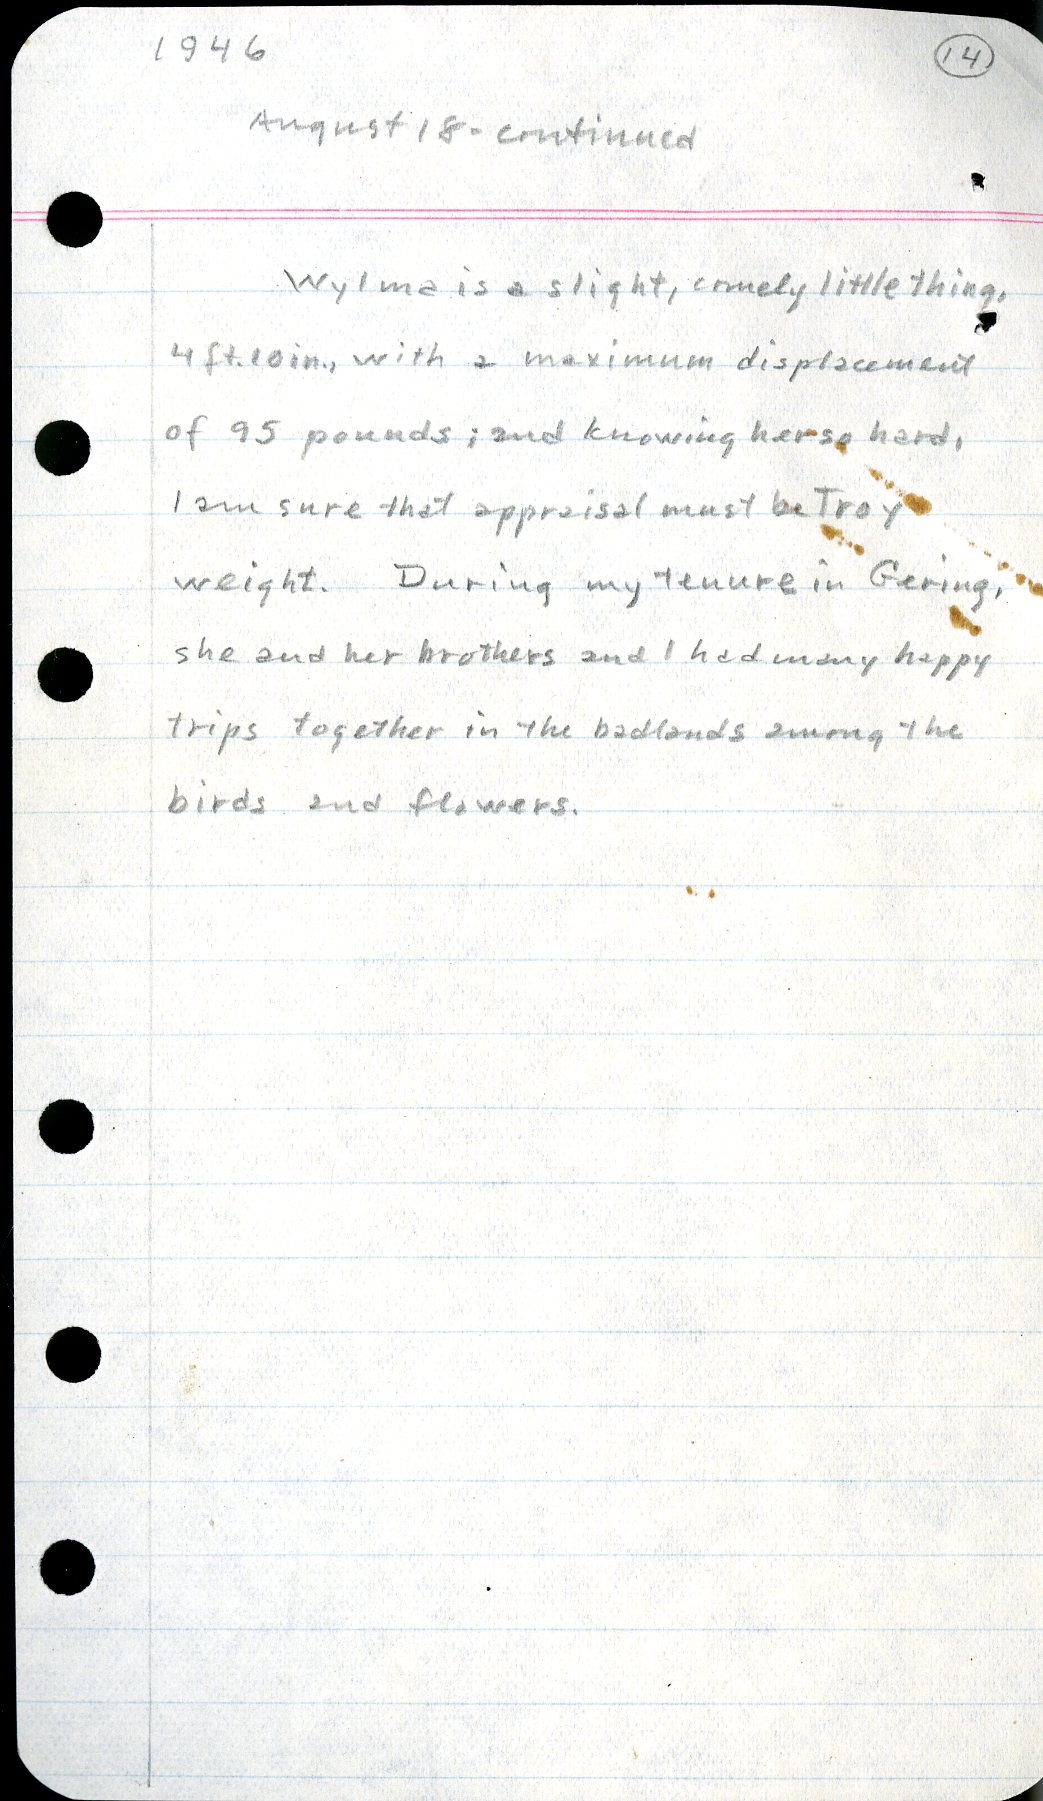 1946
14
August 18 - continued
Wylma is a slight, comely little thing,
4 ft. 10 in., with a maximum displacement
of 95 pounds; and knowing her so hard,
I am sure that appraisal must be Troy
weight. During my tenure in Gering,
she and her brothers and I had many happy
trips together in the badlands among the
birds and flowers.